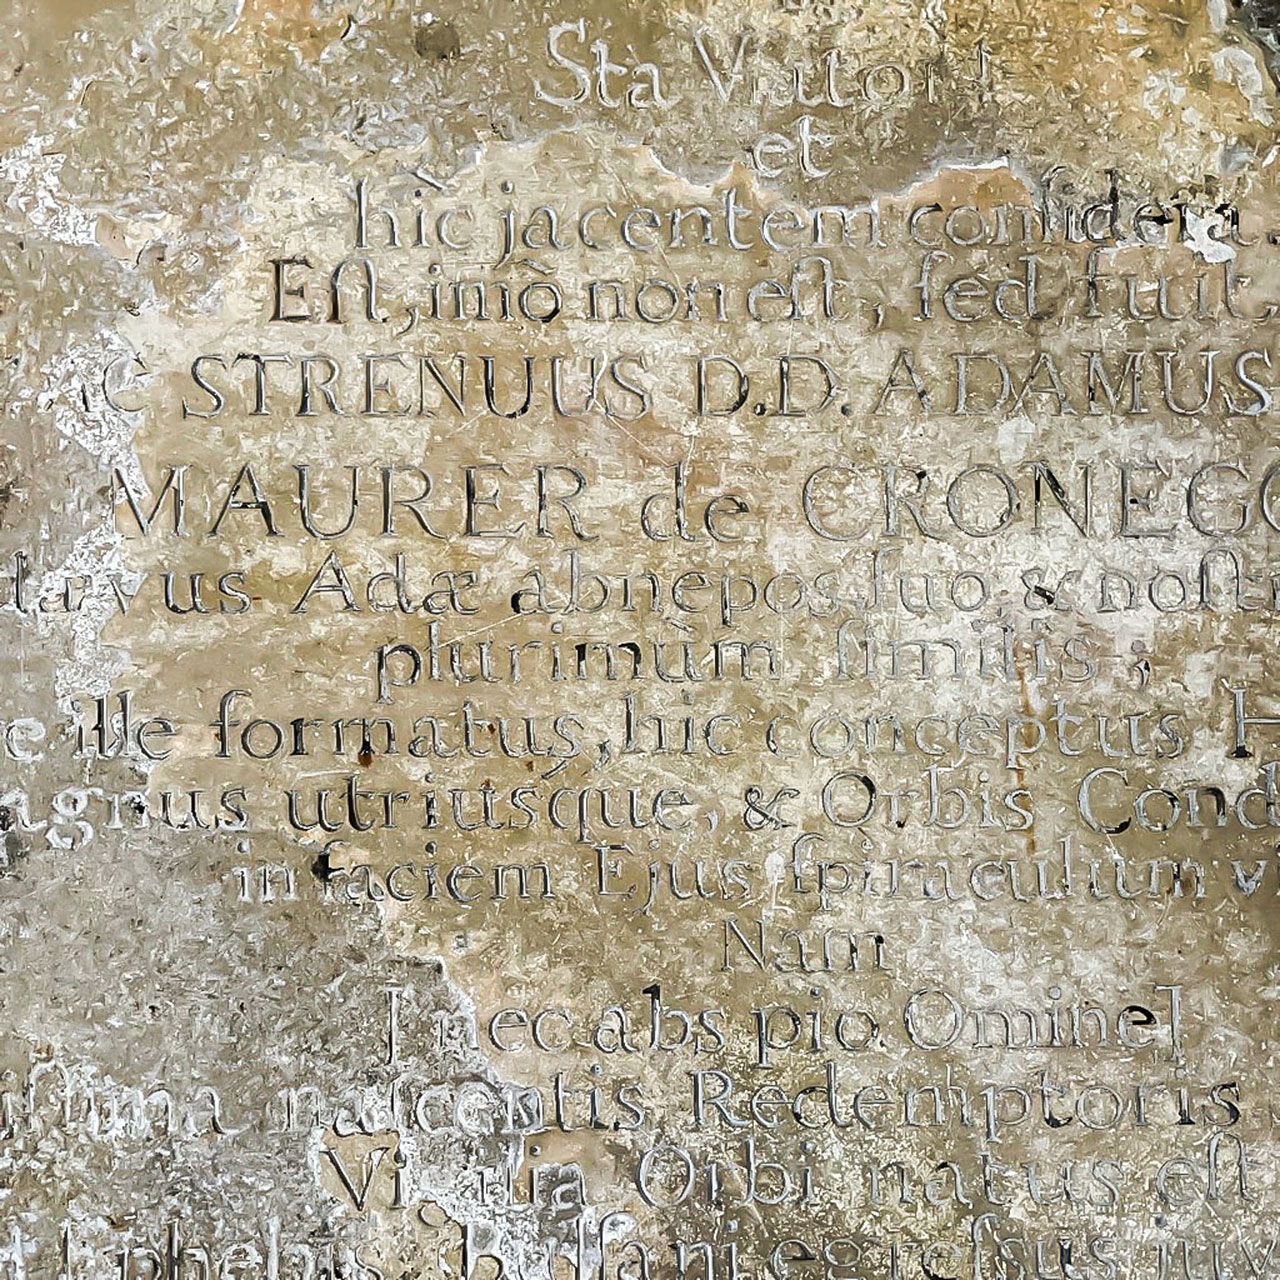 Sta Viator
et
hìc jacentem considera.
Eſt, imò non eſt, ſed fuit.
STRENUUS D.D. ADAMUS
MAURER de CRONEGG
Adæ abnepos ſuo, & noſtri
plurimùm ſimilis;
ille formatus, hic conceptus
utriusque, & Orbis Cond
in faciem Ejus ſpiraculum vi
Nam
[nec abs pio Omine]
naſcentis Redemptoris
Vigilia Orbi natus eſt
Ephebus egreſsus juv